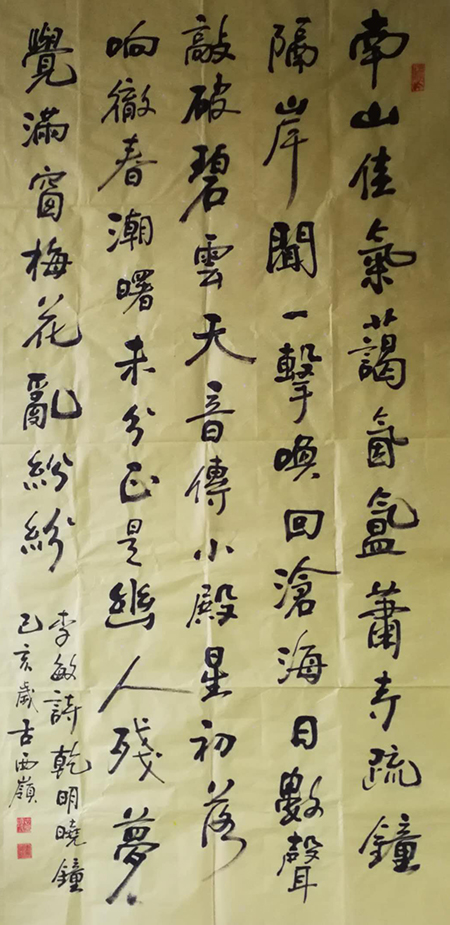 南山佳氣藹氤氳蕭寺疏鐘
隔岸聞一擊喚回滄海日數聲
敲破碧雲天音傳小殿星初落
响徹春潮曙未分正是幽人殘夢
覺滿窗梅花亂紛紛
李敏詩乾明曉鐘
己亥歲古西嶺